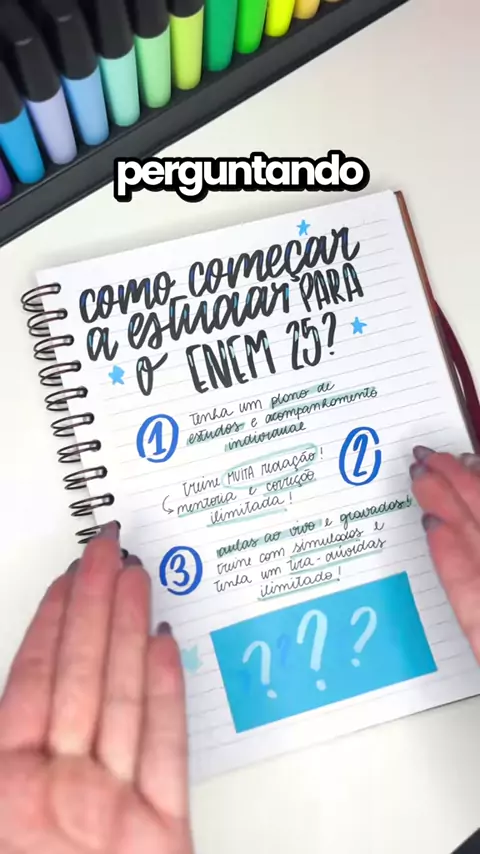 perguntando
como começar
a estudar PARA
o ENEM 25?
1 tenha um plano de
estudos e acompanhamento
individual
2 treine MUITA redação!
↳ mentoria e correção
ilimitada!
3 aulas ao vivo e gravadas!
treine com simulados e
tenha um tira-dúvidas
ilimitado!
? ? ?